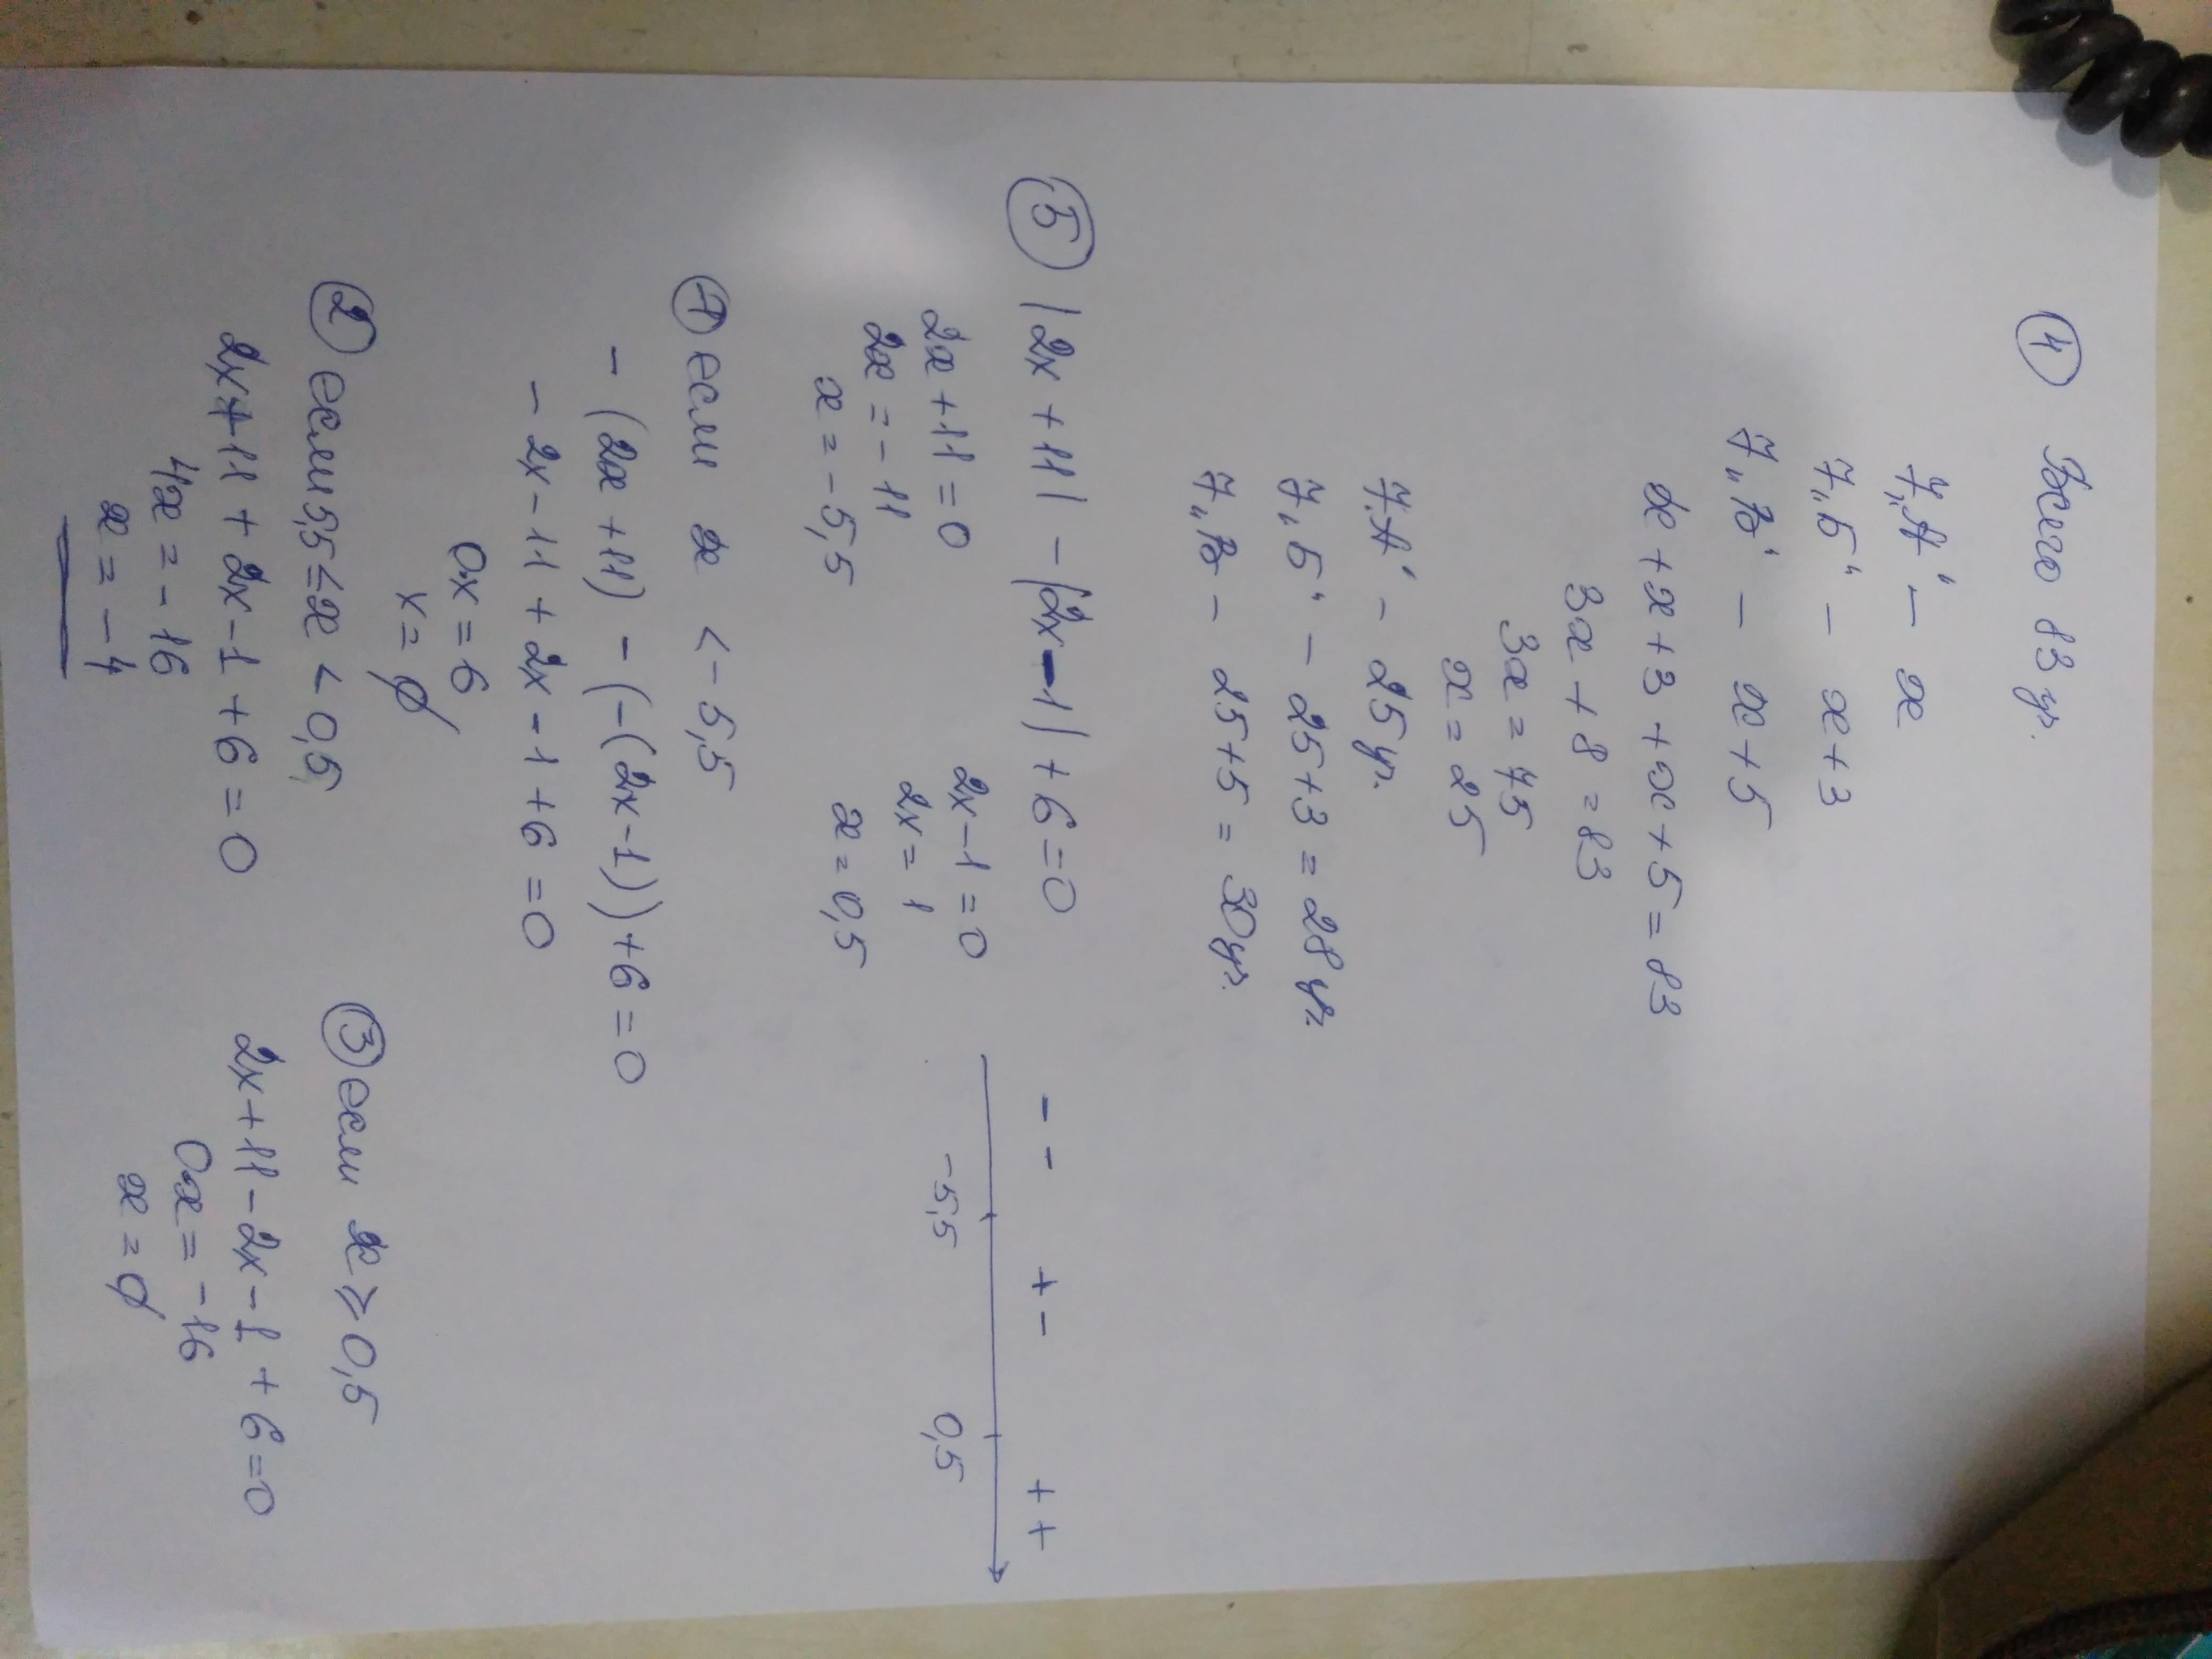 ④ Всего 83 ур.
7„А" — x
7„Б" — x+3
7„В" — x+5
x+x+3+x+5=83
3x+8=83
3x=75
x=25
7„А" — 25 ур.
7„Б" — 25+3=28 ур.
7„В — 25+5=30 ур.
⑤ |2x+11| - |2x-1| + 6=0
2x+11=0
2x=-11
x=-5,5
2x-1=0
2x=1
x=0,5
- - + - + +
-5,5 0,5
① если x < -5,5
-(2x+11) - (-(2x-1))+6=0
-2x-11+2x-1+6=0
0x=6
x=∅
② если 5,5≤x<0,5
2x+11+2x-1+6=0
4x=-16
x=-4
③ если x≥0,5
2x+11-2x-1+6=0
0x=-16
x=∅